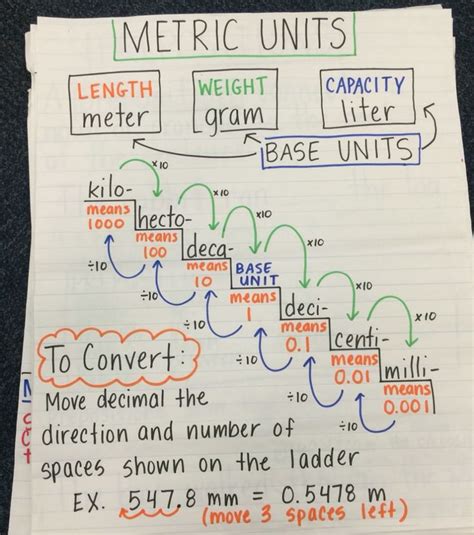 METRIC UNITS
LENGTH
meter
WEIGHT
gram
CAPACITY
liter
BASE UNITS
kilo-
means
1000
x10
hecto-
means
100
x10
deca-
means
10
x10
BASE
UNIT
means
1
x10
deci-
means
0.1
x10
centi-
means
0.01
x10
milli-
means
0.001
÷10
÷10
÷10
÷10
÷10
÷10
To Convert:
Move decimal the
direction and number of
spaces shown on the ladder
EX. 547.8 mm = 0.5478 m
(move 3 spaces left)